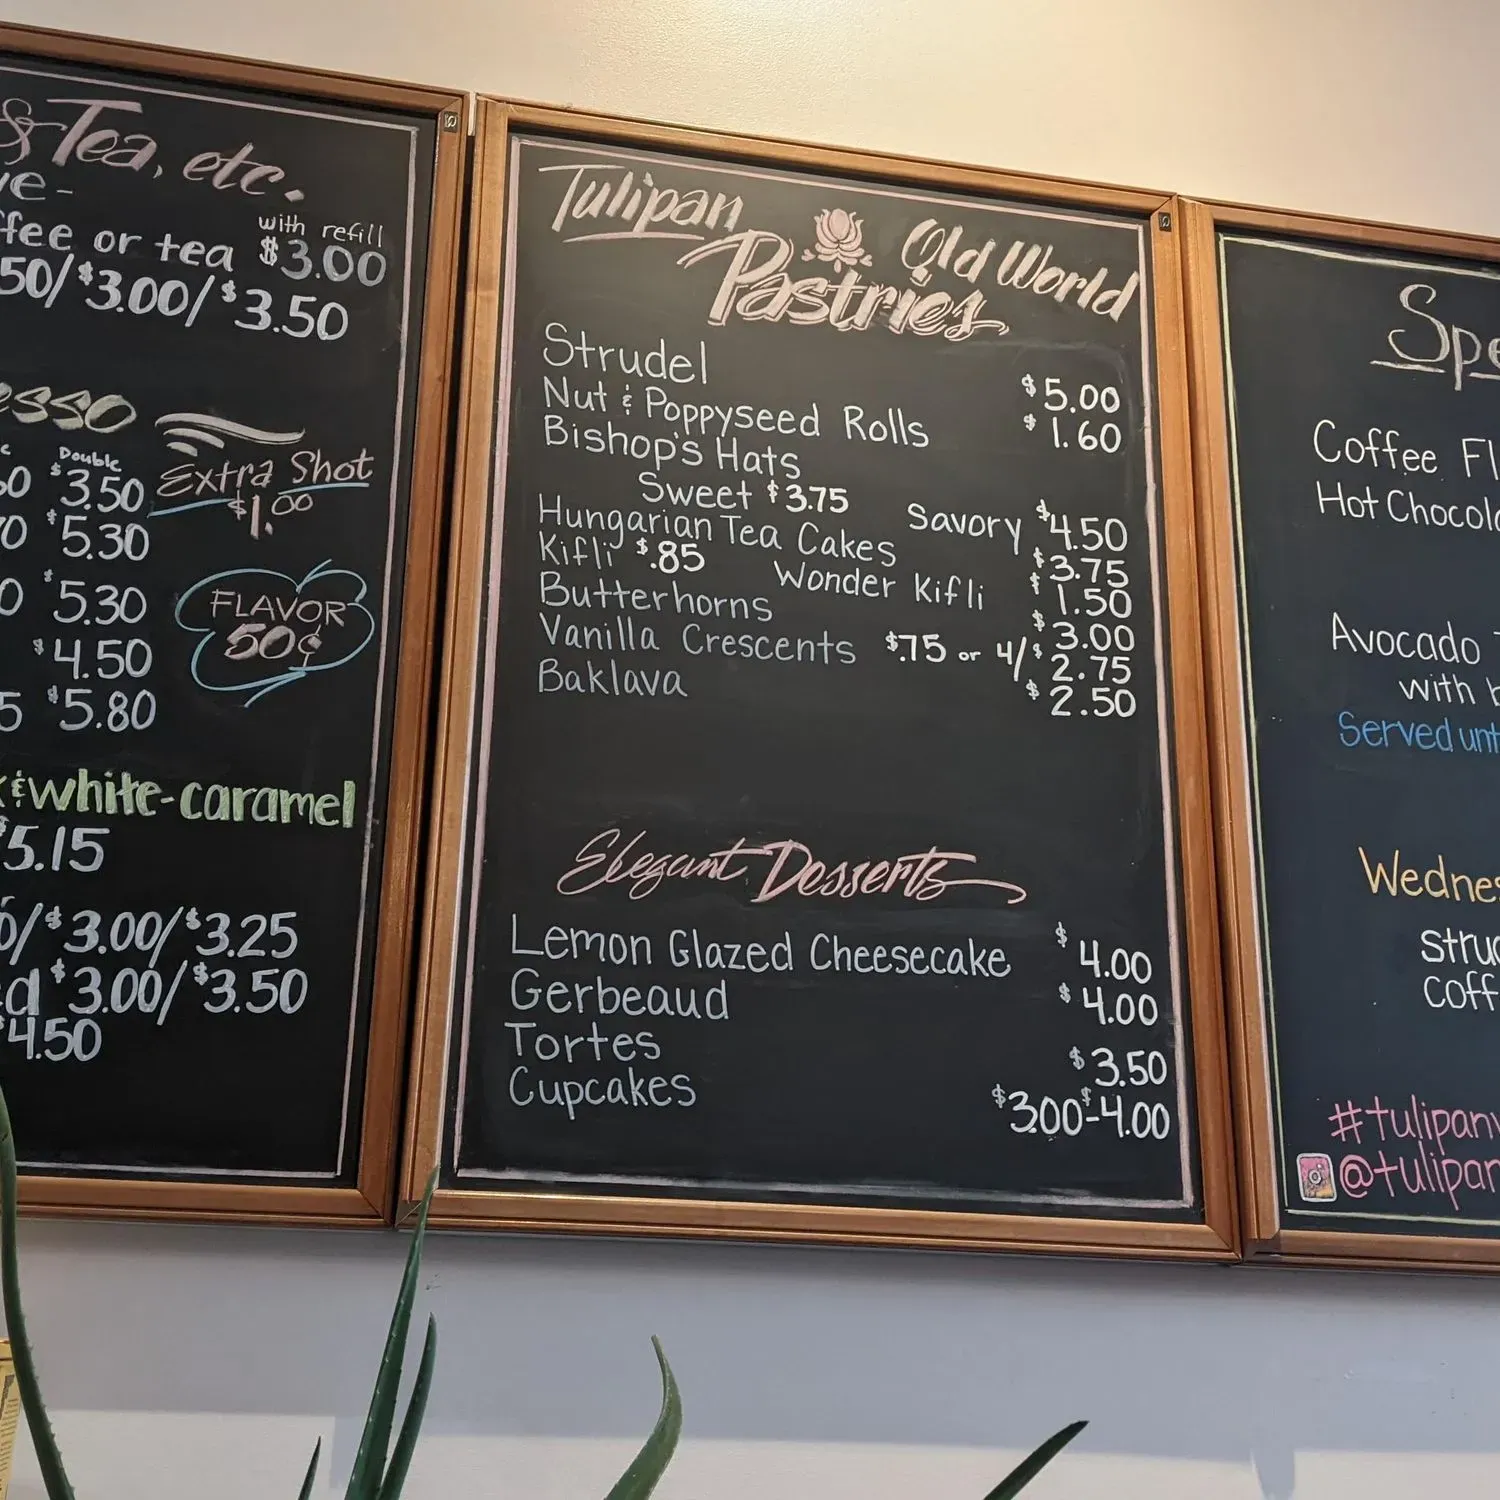 & Tea, etc.
with refill
or tea $3.00
50/$3.00/$3.50
Double
$3.50
$5.30
$5.30
$4.50
$5.80
Extra Shot
$1.00
FLAVOR
50¢
& white-caramel
$5.15
/$3.00/$3.25
$3.00/$3.50
$4.50
Tulipan Old World
Pastries
Strudel $5.00
Nut & Poppyseed Rolls $1.60
Bishop's Hats
Sweet $3.75 Savory $4.50
Hungarian Tea Cakes $3.75
Kifli $.85 Wonder Kifli $1.50
Butterhorns $3.00
Vanilla Crescents $.75 or 4/$2.75
Baklava $2.50
Elegant Desserts
Lemon Glazed Cheesecake $4.00
Gerbeaud $4.00
Tortes $3.50
Cupcakes $3.00-$4.00
Coffee Fl
Hot Chocol
Avocado
with b
Served unt
Wednes
Stru
coff
#tulipan
@tulipan